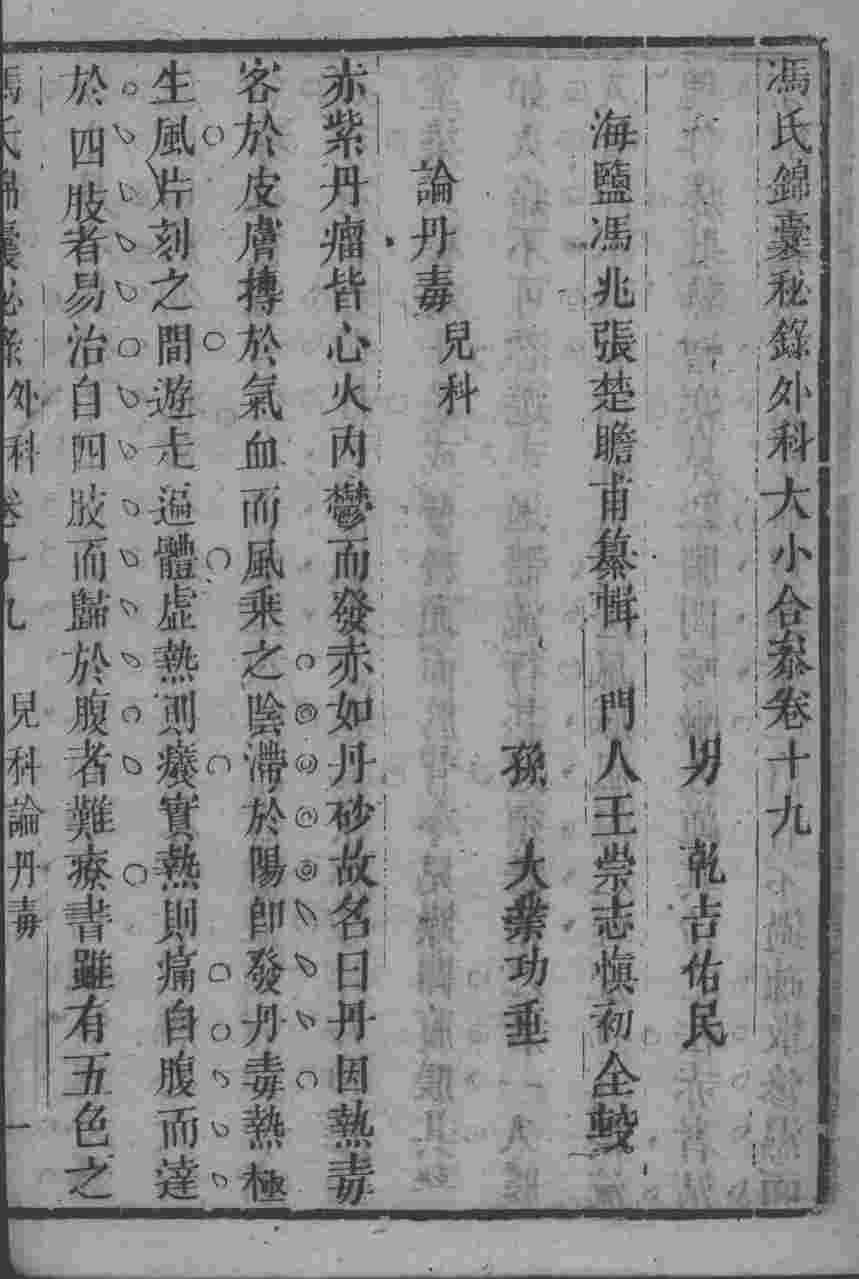 馮氏錦囊秘錄外科大小合叅卷十九
男　乾吉佑民
海鹽馮兆張楚瞻甫纂輯　門人王崇志慎初仝較
孫　大業功垂
論丹毒　兒科
赤紫丹瘤皆心火内鬱而發赤如丹砂故名曰丹因熱毒
客於皮膚摶於氣血而風乘之陰滯於陽即發丹毒熱極
生風片刻之間遊走遍體虛熱則癢實熱則痛自腹而達
於四肢者易治自四肢而歸於腹者難療書雖有五色之
馮氏錦囊秘錄　外科卷十九　兒科論丹毒　一